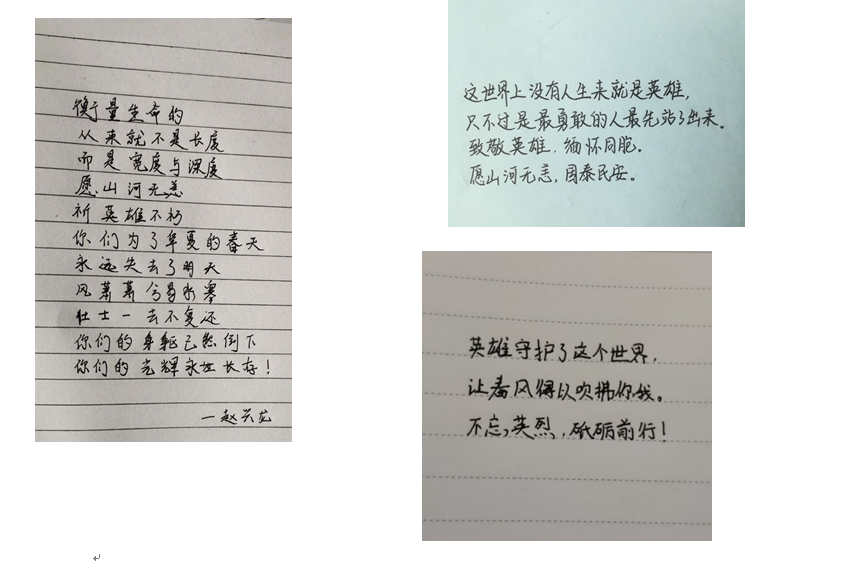 衡量生命的
从来就不是长度
而是宽度与深度
愿山河无恙
祈英雄不朽
你们为了华夏的春天
永远失去了明天
风萧萧兮易水寒
壮士一去不复还
你们的身躯已然倒下
你们的光辉永世长存!
—赵兴龙
这世界上没有人生来就是英雄,
只不过是最勇敢的人最先站了出来。
致敬英雄.缅怀同胞.
愿山河无恙,国泰民安。
英雄守护了这个世界,
让春风得以吹拂你我。
不忘英烈,砥砺前行!